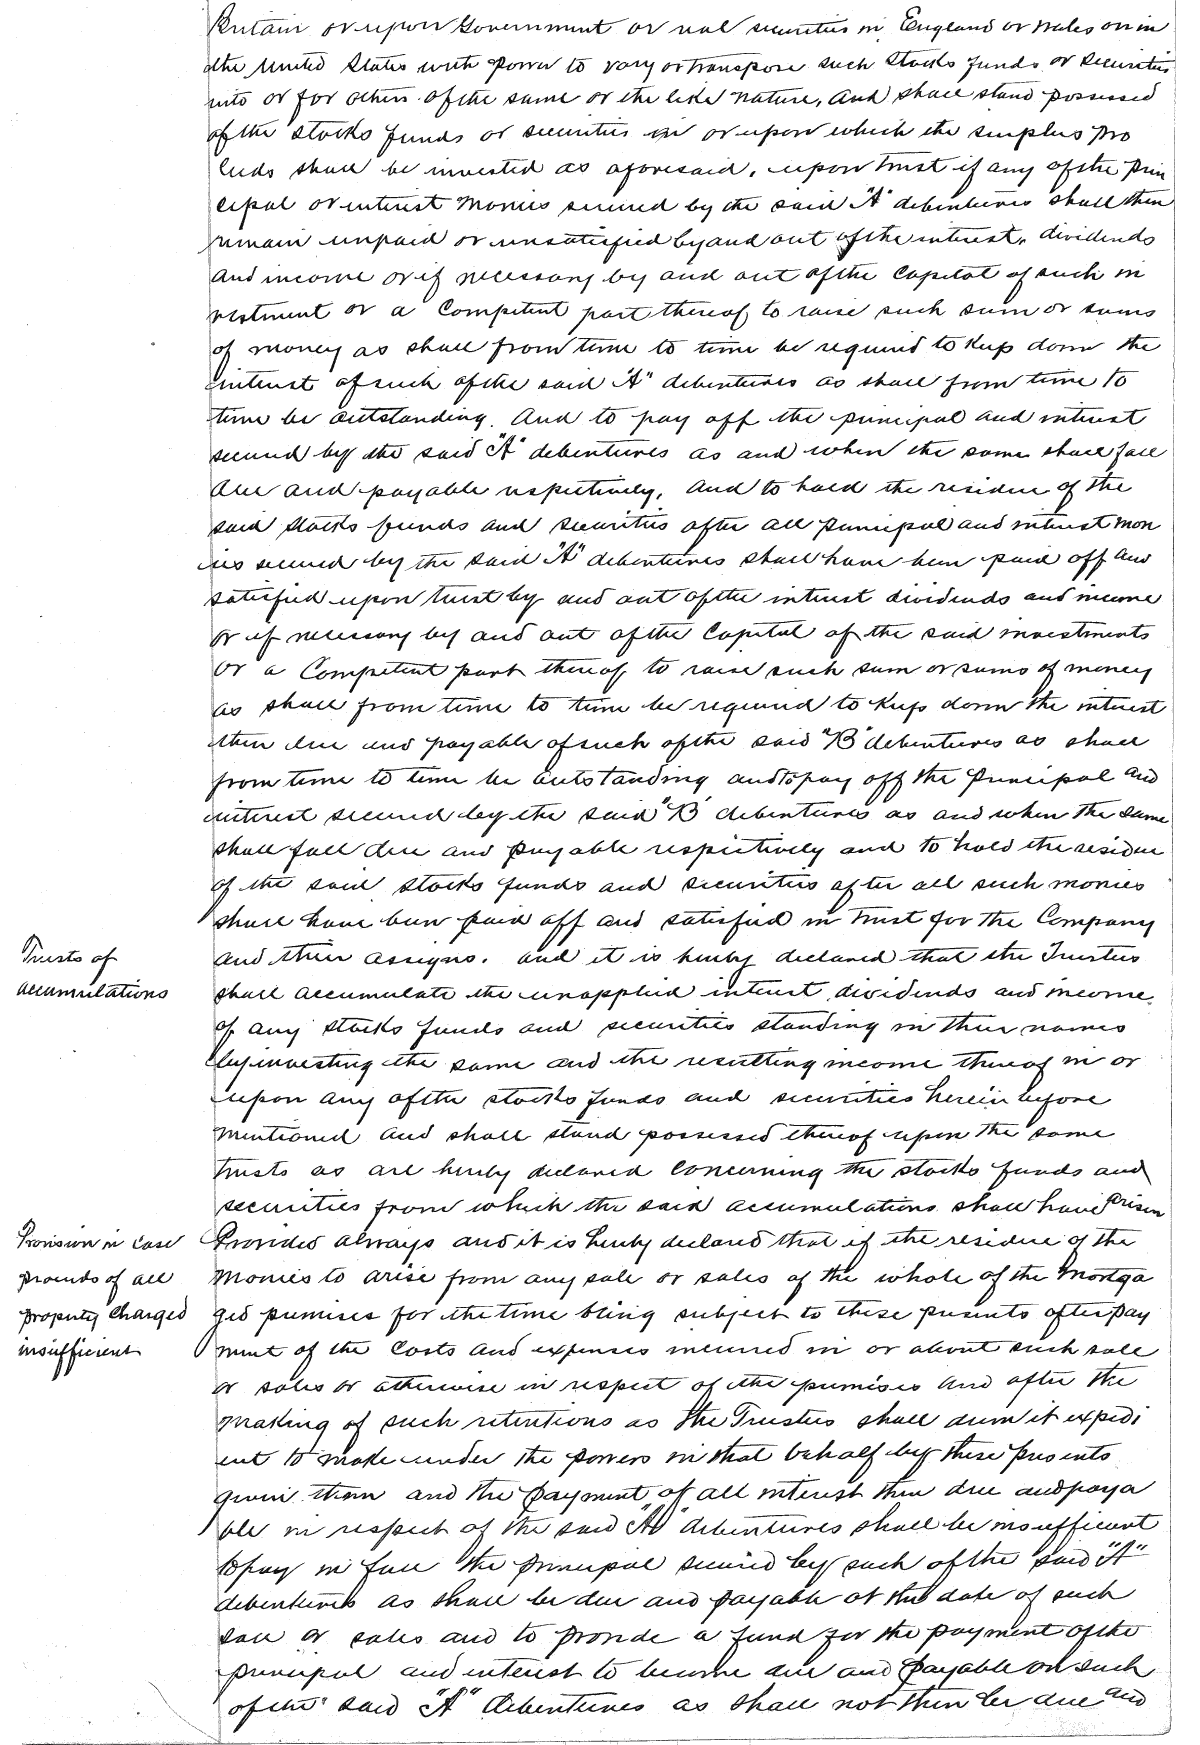 Britain or upon Government or real securities in England or Wales or in
the United States with power to vary or transpose such stocks funds or securities
into or for others of the same or the like nature, and shall stand possessed
of the stocks funds or securities in or upon which the surplus pro
ceeds shall be invested as aforesaid, upon trust if any of the prin
cipal or interest monies secured by the said "A" debentures shall then
remain unpaid or unsatisfied by and out of the interest, dividends
and income or if necessary by and out of the capital of such in
vestment or a competent part thereof to raise such sum or sums
of money as shall from time to time be required to keep down the
interest of such of the said "A" debentures as shall from time to
time be outstanding. And to pay off the principal and interest
secured by the said "A" debentures as and when the same shall fall
due and payable respectively, and to hold the residue of the
said stocks funds and securities after all principal and interest mon
ies secured by the said "A" debentures shall have been paid off and
satisfied upon trust by and out of the interest dividends and income
or if necessary by and out of the capital of the said investments
or a competent part thereof to raise such sum or sums of money
as shall from time to time be required to keep down the interest
then due and payable of such of the said "B" debentures as shall
from time to time be outstanding and to pay off the principal and
interest secured by the said "B" debentures as and when the same
shall fall due and payable respectively and to hold the residue
of the said stocks funds and securities after all such monies
shall have been paid off and satisfied in trust for the Company
Trusts of
accumulations
and their assigns. and it is hereby declared that the Trustees
shall accumulate the unapplied interest, dividends and income
of any stocks funds and securities standing in their names
by investing the same and the resulting income thereof in or
upon any of the stocks funds and securities herein before
mentioned and shall stand possessed thereof upon the same
trusts as are hereby declared concerning the stocks funds and
securities from which the said accumulations shall have arisen
Provision in case
proceeds of all
property charged
insufficient
Provided always and it is hereby declared that if the residue of the
monies to arise from any sale or sales of the whole of the mortga
ged premises for the time being subject to these presents after pay
ment of the costs and expenses incurred in or about such sale
or sales or otherwise in respect of the premises and after the
making of such retentions as the Trustees shall deem it expedi
ent to make under the powers in that behalf by these presents
given them and the payment of all interest then due and paya
ble in respect of the said "A" debentures shall be insufficient
to pay in full the principal secured by such of the said "A"
debentures as shall be due and payable at the date of such
sale or sales and to provide a fund for the payment of the
principal and interest to become due and payable on such
of the said "A" debentures as shall not then be due and